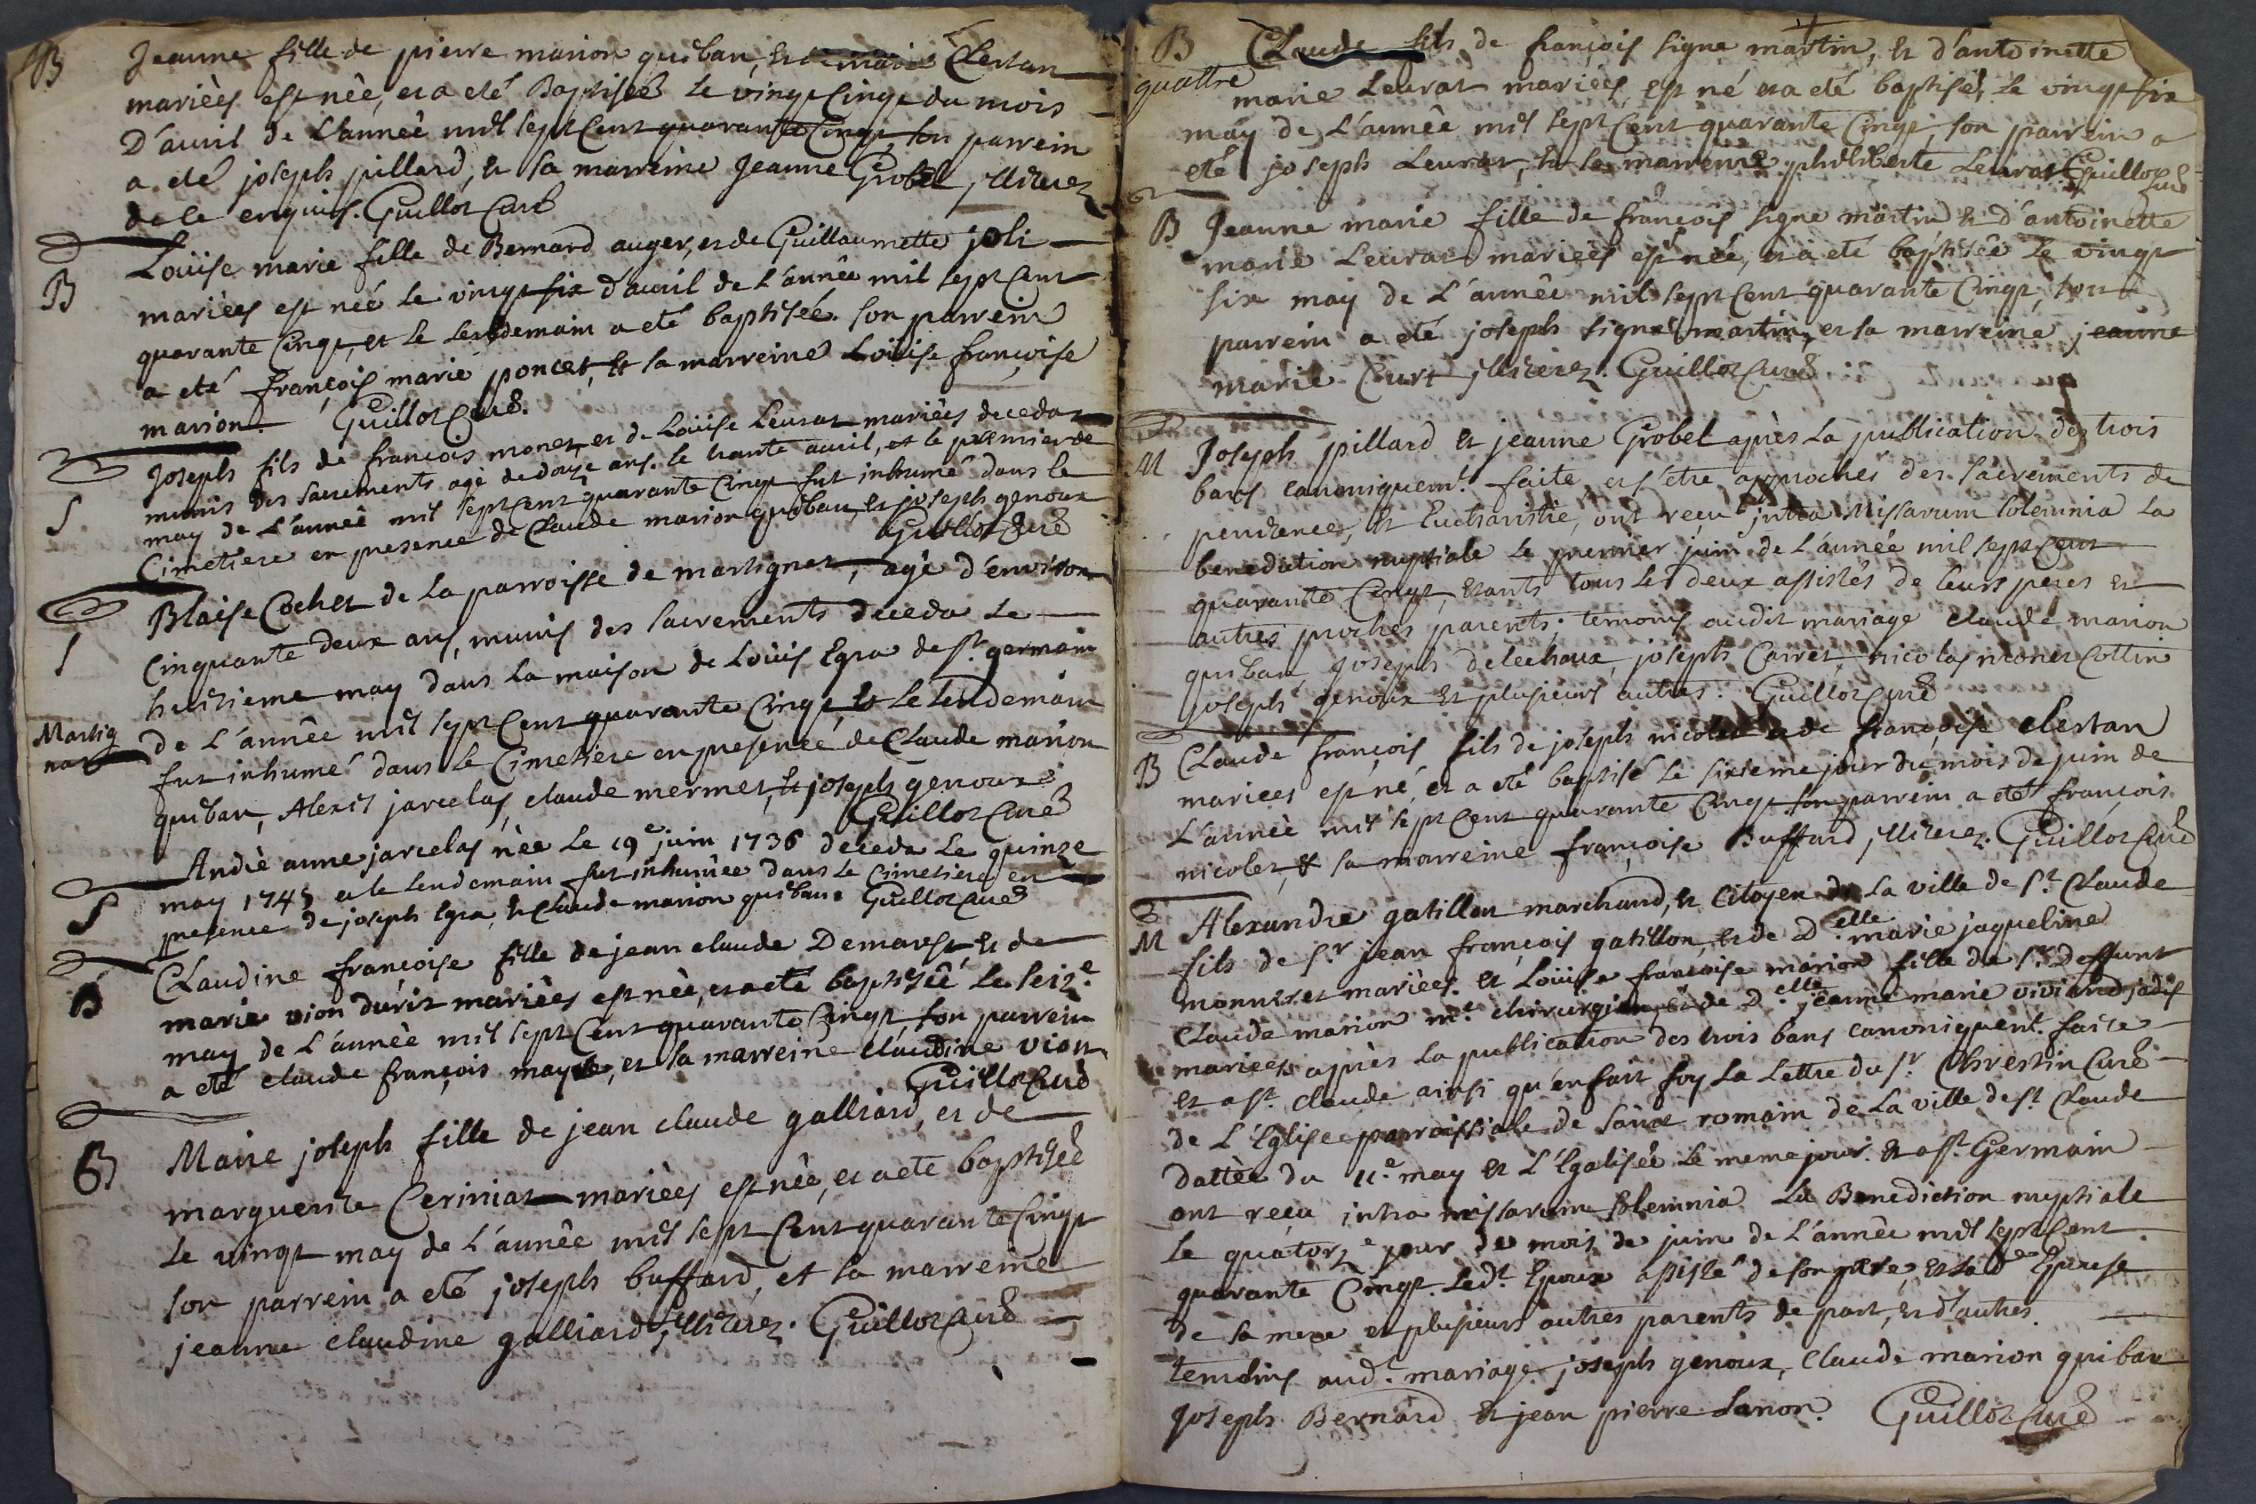 B Jeanne fille de pierre marion quiban, et de marie Clertan
mariées est née, et a eté Baptisée le vingt Cinqt du mois
D'avril de L'année mil sept Cent quarante Cinqt, son parrein
a eté joseph pillard, et sa marreine Jeanne Grobel, illiterez
de ce enquis. Guillot Curé
B Loüise marie fille de Bernard auger, et de Guillaumette joli
mariées est née le vingt six d'avril de L'année mil sept Cent
quarante Cinqt, et le lendemain a eté baptisée. son parrein
a eté françois marie poncet, et sa marreine Loüise françoise
marion. Guillot Curé.
S Joseph fils de françois monet, et de Loüise Leurat mariées deceda
munis des sacrements agé de douze ans. le trante avril, et le premier de
may de L'année mil sept Cent quarante Cinqt fut inhumé dans le
Cimetiere en presence de Claude marion quiban, et joseph genoux
Guillot Curé
S Blaise Cochet de La parroisse de martignat, agé d'environ
Cinquante deux ans, munis des sacrements deceda le
huitieme may dans La maison de Loüis Egra de st. germain
Martig
nat
de L'année mil sept Cent quarante Cinqt, et le lendemain
fut inhumé dans le Cimetiere en presence de Claude marion
quiban, Alexis jarcelas, claude mermet, et joseph genoux
Guillot Curé
S Andrè anne jarcelas née Le 19e juin 1736 deceda Le quinze
may 1745 et le lendemain fut inhumée dans Le Cimetiere en
presence de joseph Egra, et Claude marion quiban. Guillot Curé
B Claudine françoise fille de jean claude Demarest, et de
marie vion durit mariées est née, et a eté baptisée Le seize
may de L'année mil sept Cent quarante Cinqt, son parrein
a eté claude françois mayet, et sa marreine claudine vion
Guillot Curé
B Marie joseph fille de jean claude galliard, et de
marguerite Ceriniat mariées est née, et a ete baptisée
Le vingt may de L'année mil sept Cent quarante Cinqt
son parrein a eté joseph buffard, et sa marreine
jeanne claudine galliard, illiterez. Guillot Curé
B Claude fils de françois signe martin, et d'antoinette
quattre
marie Leurat mariées est né et a eté baptisé le vingt six
may de L'année mil sept Cent quarante Cinqt, son parrein a
eté joseph Leurat, et sa marreine philiberte Leurat Guillot
Curé
B Jeanne marie fille de françois signe martin et d'antoinette
marie Leurat mariées est née, et a eté baptisée Le vingt
six may de L'année mil sept Cent quarante Cinqt, son
parrein a eté joseph signe martin, et sa marreine jeanne
marie Curt illiterez. Guillot Curé
M Joseph pillard et jeanne Grobel après La publication des trois
bans canoniquemt. faite, et s'etre approchés des sacrements de
penitence, et Eucharistie, ont reçu intra Missarum solemnia La
benediction nuptiale Le premier juin de L'année mil sept Cent
quarante Cinqt, etants tous les deux assistés de leurs peres et
autres proches parents; temoins audit mariage claude marion
quiban, joseph delechaux, joseph Carret, nicolas monet Cottin
joseph genoux et plusieurs autres. Guillot Curé
B Claude françois fils de joseph nicolet et de françoise Clertan
mariees est né, et a eté baptisé le sixieme jour du mois de juin de
L'année mil sept Cent quarante Cinqt son parrein a eté françois
nicolet, et sa marreine françoise Buffard, illiterez. Guillot Curé
M Alexandre gatillon marchand, et Citoyen de La ville de st. Claude
fils de sr. jean françois gatillon, et de Delle. marie jaqueline
monnieret mariées. et Loüise françoise marion fille de sr. deffunt
Claude marion me. chirurgien, et de Delle. jeanne marie viviand jadis
mariees après La publication des trois bans canoniquent. faite
et a st. claude ainsi qu'en fait foy La Lettre du sr. Chrestin Curé
de L'Eglise parroissiale de saint romain de La ville de st. claude
dattée du 11e. may et L'Egalisée Le meme jour. et a st. Germain
ont reçu intra missarum solemnia La Benediction nuptiale
le quatorze jour de mois de juin de L'année mil sept Cent
quarante Cinqt. Ledt. Epoux assisté de son pere, et Lade Epouse
de sa mere et plusieurs autres parents de part, et d'autres.
temoins aud. mariage joseph genoux, Claude marion quiban
joseph Bernard et jean pierre Lanon. Guillot Curé